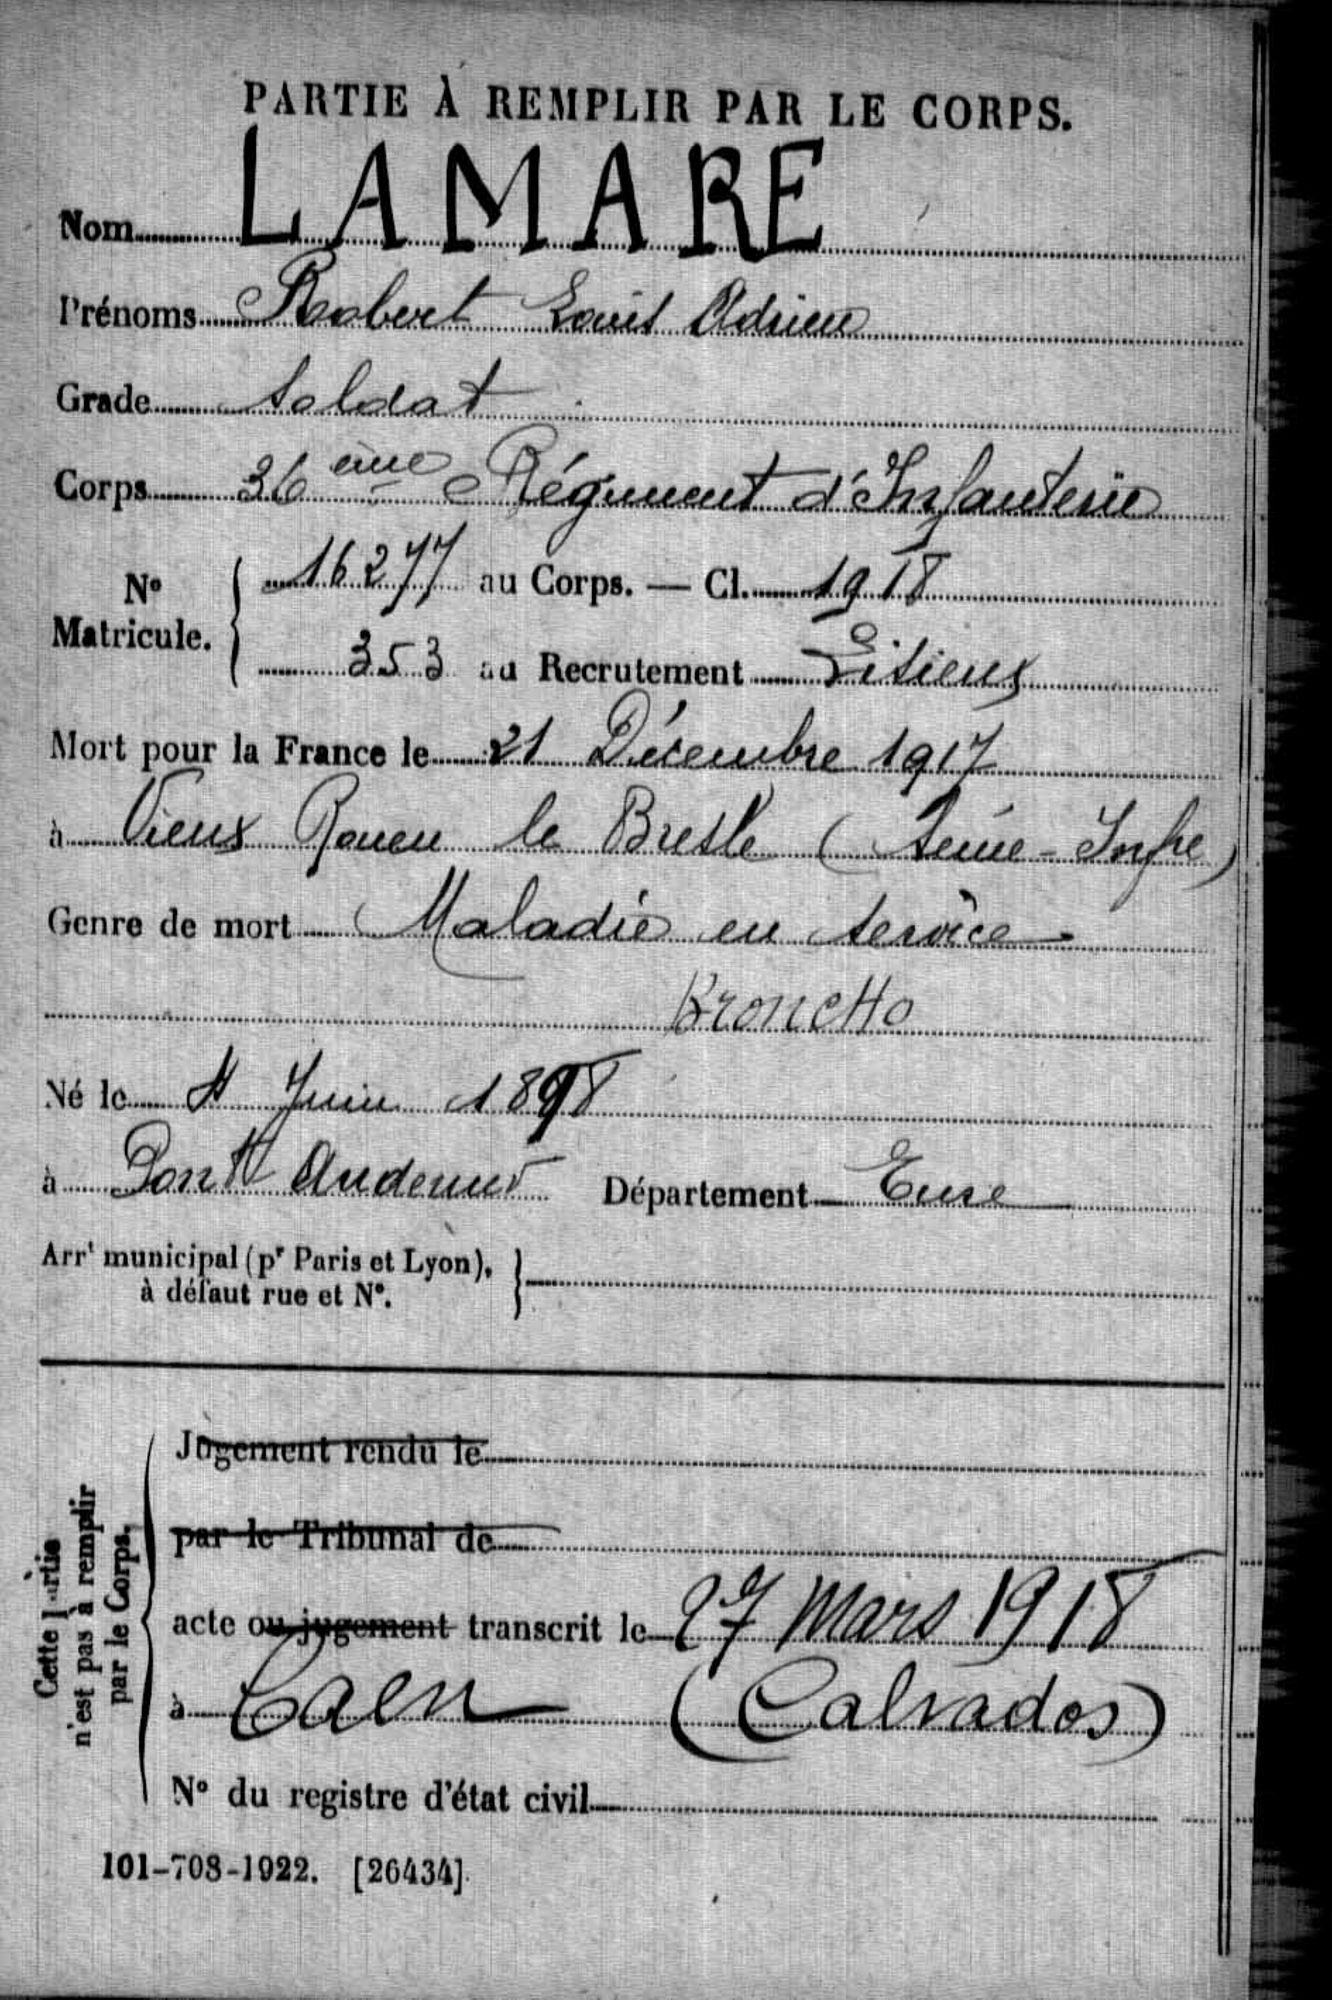 PARTIE À REMPLIR PAR LE CORPS.
Nom LAMARE
Prénoms Robert Louis Adrien
Grade Soldat
Corps 36 ème Régiment d'Infanterie
No Matricule. 16277 au Corps. — Cl. 1918
353 au Recrutement Lisieux
Mort pour la France le 21 Décembre 1917
à Vieux Rouen le Bresle (Seine-Infre)
Genre de mort Maladie en service
Broncho
Né le 4 Juin 1898
à Pont Audemer Département Eure
Arrt municipal (pr Paris et Lyon),
à défaut rue et No.
Cette partie
n'est pas à remplir
par le Corps.
Jugement rendu le
par le Tribunal de
acte ou jugement transcrit le 27 Mars 1918
à Caen (Calvados)
No du registre d'état civil
101-708-1922. [26434]